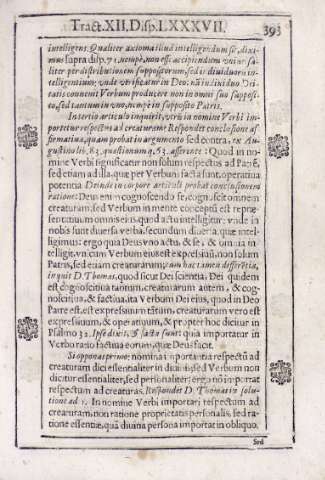 Tract. XII, Disp. LXXXVII. 393
intelligens. Qualiter axioma illud intelligendum sit, dixi-
mus supra disp. 71, nempè, non esse accipiendum universa-
liter per distributionem suppositorum, sed individuorum in-
telligentium; undè verificatur in Deo: nã individuo Dei-
tatis convenit Verbum producere non in omni suo supposi-
to, sed tantum in uno, nempè in supposito Patris.
In tertio articulo inquirit, utrū in nomine Verbi im-
portetur respectus ad creaturam: Respondet conclusione af-
firmativa, quam probat in argumento sed contra, ex Au-
gustino lib. 83. quæstionum q. 63. asserente: Quod in no-
mine Verbi significatur non solum respectus ad Patrē,
sed etiam ad illa, quæ per Verbum facta sunt, operativa
potentia. Deinde in corpore articuli probat conclusionem
ratione: Deus enim cognoscendo se, cognoscit omnem
creaturam, sed Verbum in mente conceptū est repræ-
sentativum omnis eius, quod actu intelligitur; unde in
nobis sunt diversa verba, secundum diversa, quæ intel-
ligimus: ergo quia Deus uno actu, & se, & omnia in-
telligit, unicum Verbum eius est expressivū, non solum
Patris, sed etiam creaturarum; cum hac tamen differētia,
inquit D. Thomas, quod sicut Dei scientia, Dei quidem
est cognoscitiva tantum, creaturarum autem, & cog-
noscitiva, & factiva, ita Verbum Dei eius, quod in Deo
Patre est, est expressivum tātum, creaturarum vero est
expressivum, & operativum, & propter hoc dicitur in
Psalmo 32. Ipse dixit, & facta sunt: quia importatur in
Verbo ratio factiva eorum, quæ Deus facit.
Si opponas primo: nomina importantia respectū ad
creaturam dici essentialiter in divinis, sed Verbum non
dicitur essentialiter, sed personaliter: ergo nō importat
respectum ad creaturas. Respondet D. Thomas in solu-
tione ad 1. In nomine Verbi importari respectum ad
creaturam, non ratione proprietatis personalis, sed ra-
tione essentiæ, quā divina persona importat in obliquo.
Sed